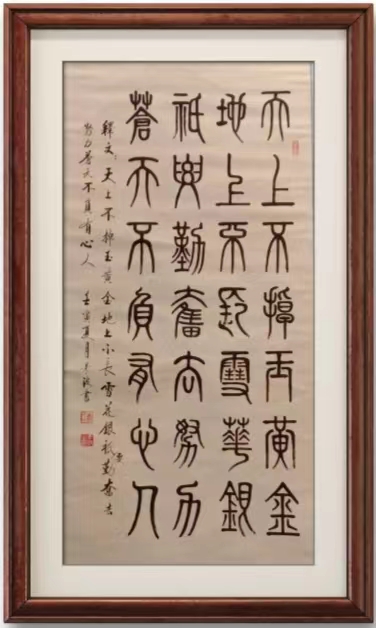 天上不掉玉黃金
地上不長雪華銀
祇要勤奮去努力
蒼天不負有心人
釋文：天上不掉玉黄金地上不長雪花銀祇要勤奮去
努力苍天不負有心人 壬寅夏月 書